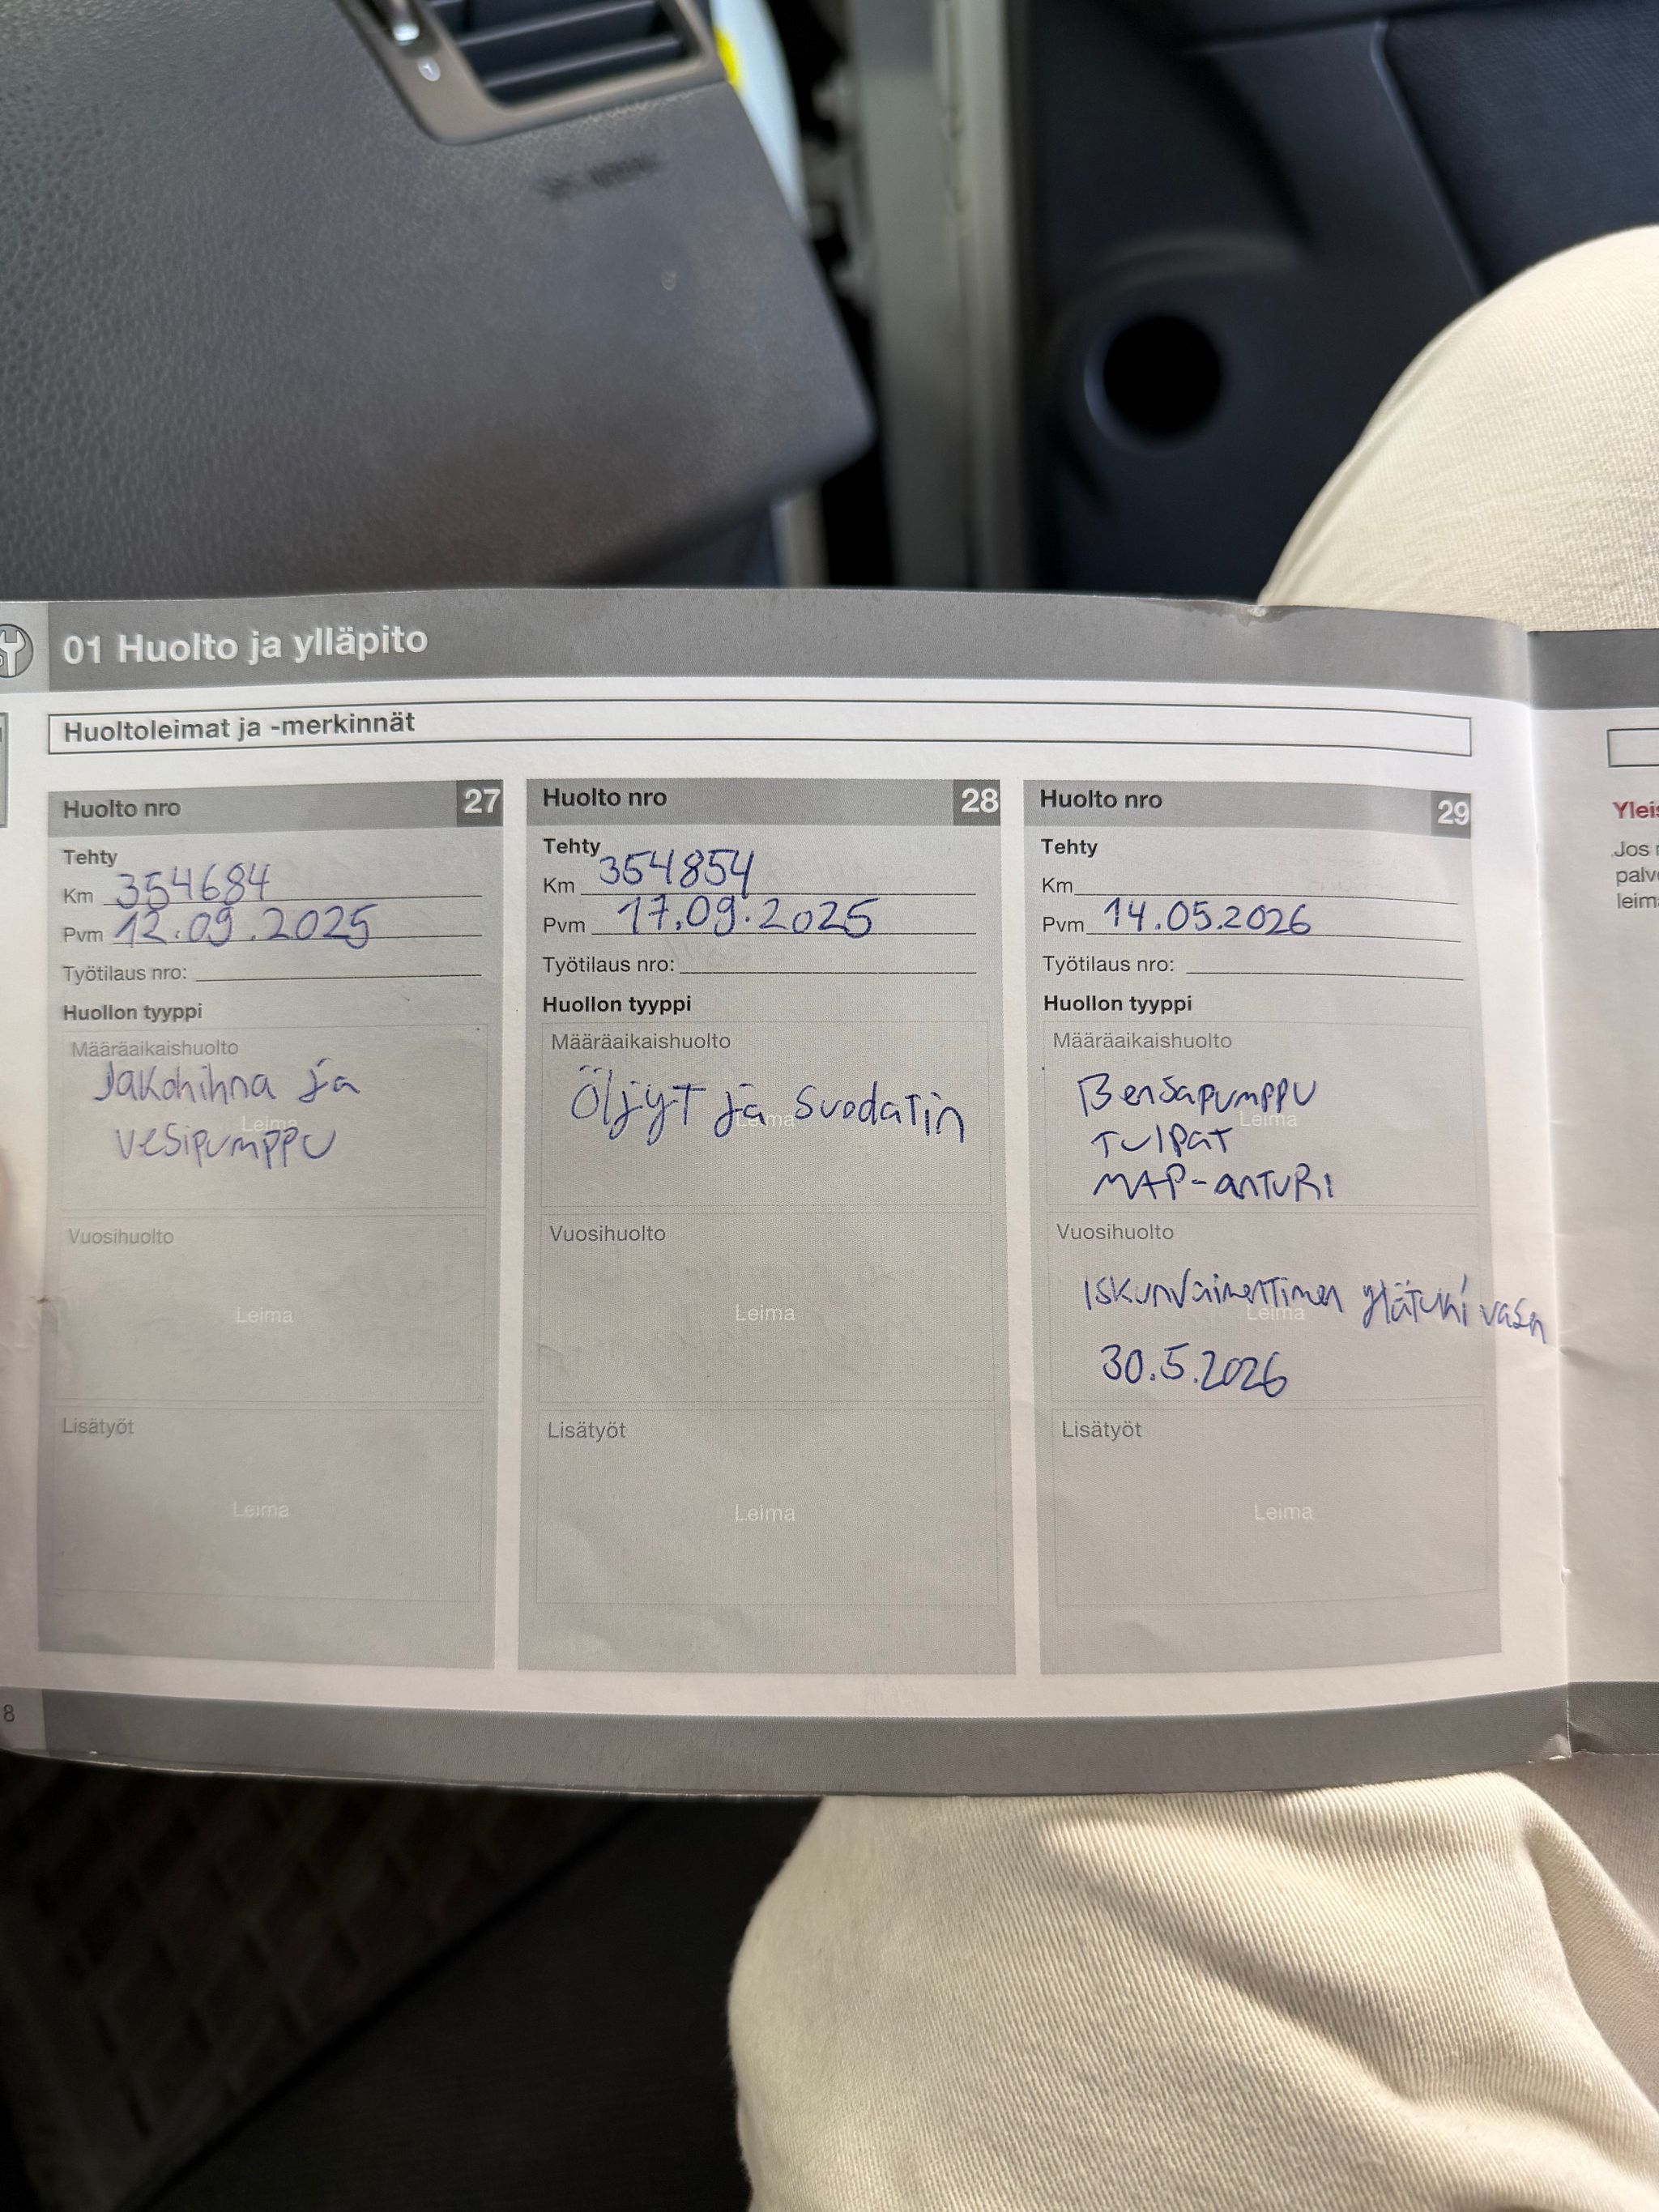 01 Huolto ja ylläpito
Huoltoleimat ja -merkinnät
Huolto nro 27
Tehty
Km 354684
Pvm 12.09.2025
Työtilaus nro:
Huollon tyyppi
Määräaikaishuolto
Jakohihna ja
Leima
vesipumppu
Vuosihuolto
Leima
Lisätyöt
Leima
Huolto nro 28
Tehty
Km 354854
Pvm 17.09.2025
Työtilaus nro:
Huollon tyyppi
Määräaikaishuolto
Öljyt ja suodatin
Leima
Vuosihuolto
Leima
Lisätyöt
Leima
Huolto nro 29
Tehty
Km
Pvm 14.05.2026
Työtilaus nro:
Huollon tyyppi
Määräaikaishuolto
Bensapumppu
Leima
Tulpat
MAP-anturi
Vuosihuolto
Iskunvaimentimen ylätuki vasen
Leima
30.5.2026
Lisätyöt
Leima
8
Yleis
Jos
palve
leima